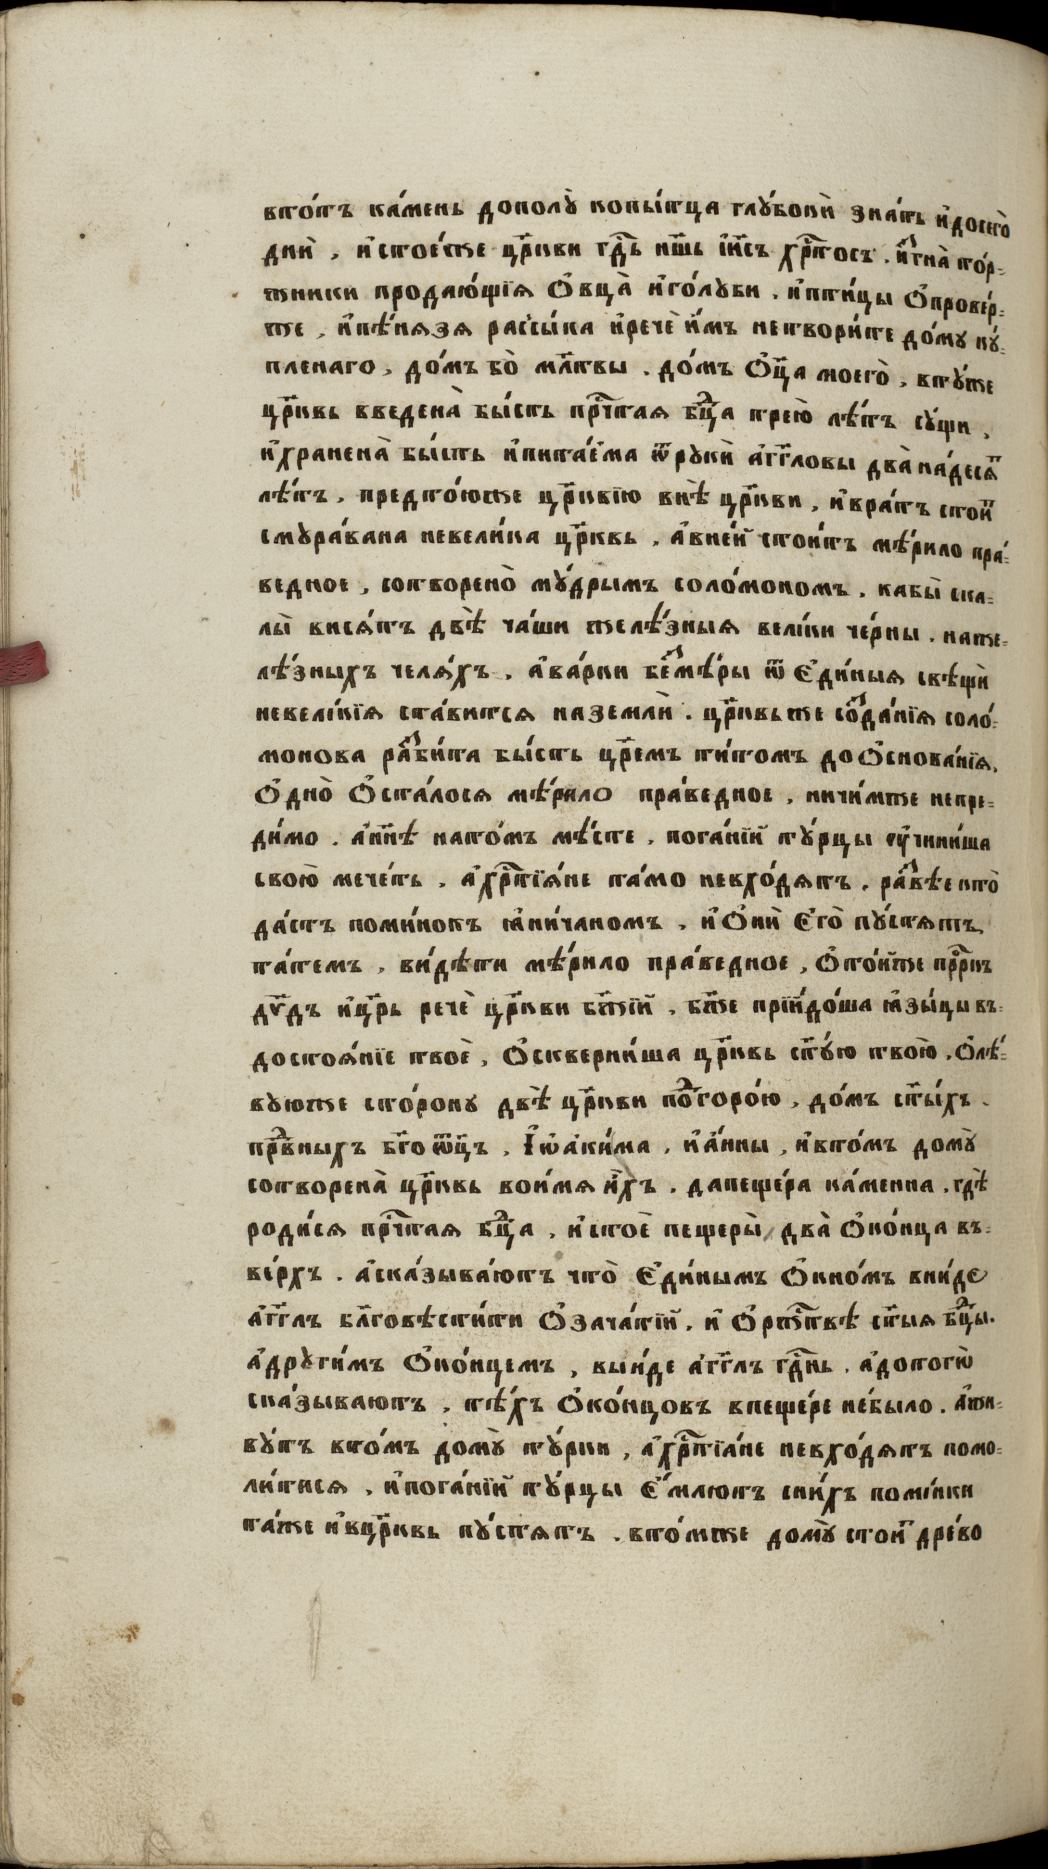 вто́тъ ка́мень дополꙋ̀ копы́тца глꙋ́бокѝ зна́ть и҆досегѡ̀
днѝ , и҆стое́ѧже цр҃кви гд҇ь нш҃ъ і҆и҃съ хрⷭ҇тосъ . и҆згна̀ то́р-
жники продаю́щїѧ ѻ҆вца̀ и҆го́лꙋби . и҆пти́цы ѻ҆прове́р-
же , и҆пѣ́нѧзѧ рассы́па и҆речѐ и҆́мъ нетвори́те до́мꙋ кꙋ́-
пленаго , до́мъ бо̀ мл҃твы . до́мъ ѻ҆ц҃а моегѡ̀ , втꙋ́же
цр҃ковь введена̀ бы́сть прⷭ҇тая бцⷣа трею̀ лѣ́тъ сꙋ́щи ,
и҆хранена̀ бы́сть и҆пита́ема ѿрꙋкѝ а҆гг҃ловы два̀на́десѧт
лѣ́тъ . предто́юже цр҃квїю внѣ̀ цр҃кви , и҆вра́тъ стои́т
смꙋра́вана невели́ка цр҃ковь . а҆вне́й стои́тъ мѣ́рило пра́-
ведное , сотворено̀ мꙋ́дрымъ соло́мономъ . кабы̀ ска-
лы̀ вися́тъ двѣ̀ ча́ши желѣ́зныѧ вели́ки че́рны . наже-
лѣ́зныхъ челя́хъ . а҆ва́рки безмѣ́ры ѿ є҆ди́ныѧ свѣщѝ
невели́кїѧ ста́витсѧ наземлѝ . цр҃ковьже созда́нїѧ соло́-
монова разби́та бы́сть цр҃емъ ти́томъ доѻ҆снова́нїѧ,
ѻ҆дно̀ ѻ҆ста́лосѧ мѣ́рило пра́ведное , ничи́мже невре-
ди́мо . а҆нн҃ѣ нато́мъ мѣ́сте , пога́нїй тꙋ́рцы ᲂу҆чини́ша
свою̀ мече́ть . а҆хрⷭ҇тїя́не та́мо невхо́дѧтъ . ра́звѣе кто̀
да́стъ поми́нокъ ꙗ҆ни́чаномъ , и҆ѻ҆нѝ є҆го̀ пꙋ́стѧтъ
та́темъ , ви́дѣти мѣ́рило пра́ведное , ѻ҆то́йже прⷪ҇ркъ
дв҃дъ и҆цр҃ь речѐ цр҃кви бж҃їй , бж҃е прїи́до́ша ꙗ҆зы́цы въ-
достоя́нїе твоѐ , ѻ҆скверни́ша цр҃ковь ст҃ꙋ́ю твою̀ . ѻ҆лѣ́-
вꙋюже сто́ронꙋ двѣ̀ цр҃кви подгоро́ю , до́мъ ст҃ы́хъ .
првⷣныхъ бг҃оѻтц҃ъ , і҆ѡаки́ма , и҆а́нны , и҆вто́мъ домꙋ̀
сотворена̀ цр҃ковь вои́мѧ и҆́хъ . дапеще́ра ка́менна . гдѣ̀
роди́сѧ прⷭ҇тая бцⷣа , и҆стоѐ пещеры̀ два̀ ѻ҆ко́нца въ-
ве́рхъ . а҆ска́зываютъ что̀ є҆ди́нымъ ѻ҆кно́мъ вни́де
а҆гг҃лъ бл҃говѣсти́ти ѻ҆зача́тїй . и҆ ѻ҆ржⷭ҇твѣ ст҃ыѧ бцⷣы .
а҆дрꙋги́мъ ѻ҆ко́нцемъ , вы́иде а҆гг҃лъ гдⷭ҇нь . а҆дотогѡ̀
ска́зываютъ , тѣ́хъ ѻ҆ко́нцовъ впеще́ре не́было . а҆жи-
вꙋ́тъ вто́мъ домꙋ̀ тꙋ́рки , а҆хрⷭ҇тїа́не невхо́дѧтъ помо-
ли́тисѧ , и҆пога́нїй тꙋ́рцы є҆́млютъ сни́хъ поми́нки
та́же и҆вцр҃ковь пꙋ́стѧтъ . вто́мже домꙋ̀ стои́т дре́во